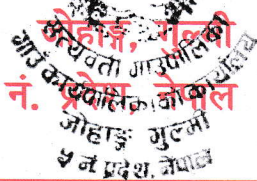 जोहाङ्ग, गुल्मी
नं. प्रदेश, नेपाल
सत्यवती गाउँपालिका
गाउँ कार्यपालिकाको कार्यालय
जोहाङ्ग गुल्मी
५ नं. प्रदेश, नेपाल